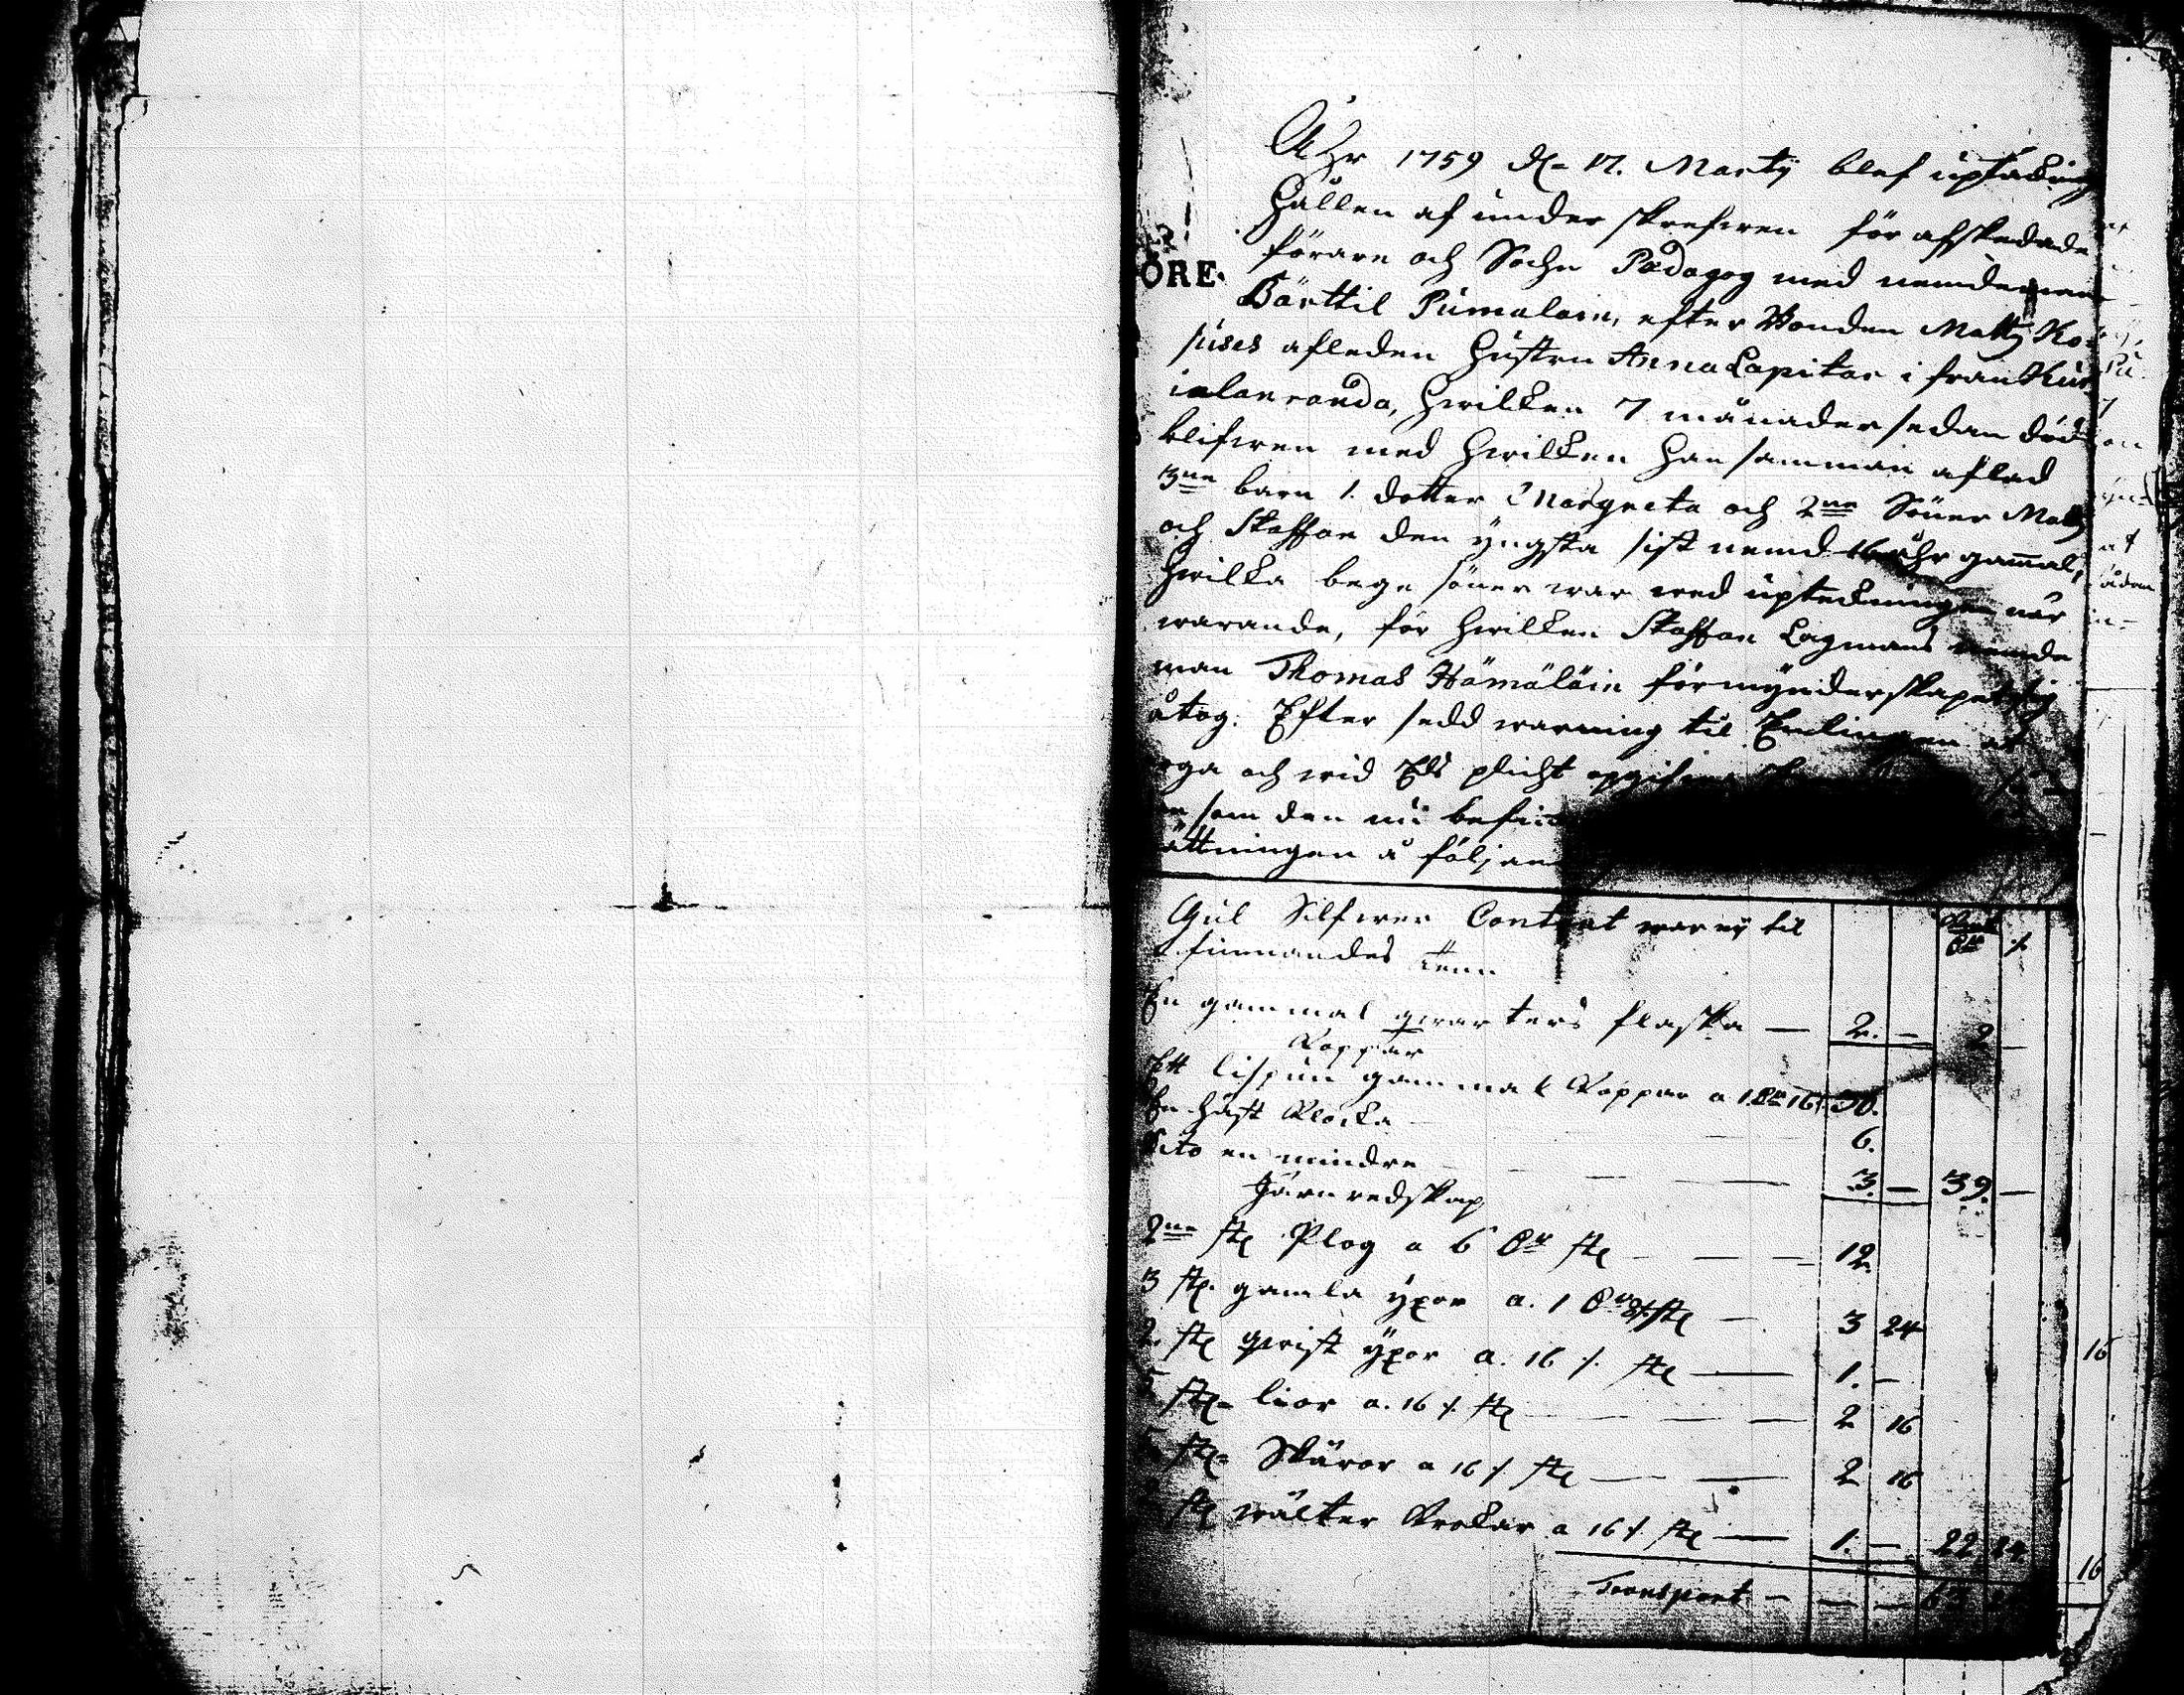 Åhr 1759 d. 17. Martÿ blef uptäckning
hållen af under skrefwen för afskedade
förare och Sochn Pædagog med nemdeman
ÖRE.
Bärttil Pumalain, efter Bonden Matts Ko
suses afleden hustru Anna Lapitar i från Kur
ialanranda, hwilken 7 månader sedan död
blifwen med hwilken han samman aflad
3ne barn 1. dotter Margreta och 2ne Söner Matts
och Staffan den yngsta sist nemd 16 åhr gam̅al,
hwilka bege söner war wed upteckningen när
warande, för hwilken Staffan Lagmans nemde
man Thomas Hämäläin förmynderskapet sig
åtog. Efter sedd warning til Enclingen at
ega och wid Eds plicht opgifwa
som den nu befin
ättningen å följan
Gul Silfwer Contant war ej til
finnandes Tenn
En gammal qwarters flaska — 2. — 2 —
Koppar
Ett lispun gammal Koppar a 1 Dr 16 /. 30.
En häst Klocka 6.
Dito en mindre 3. — 39. —
Järn redskap
2ne st. Plog a 6 Dr st. 12.
3 st. gamla yxor a. 1 Dr 8 /. st. — 3 24
2 st. qwist yxor a. 16 /. st. — 1. —
5 st. liar a. 16 /. st. — 2 16
5 st. Skäror a 16 /. st. — 2 16
st. wälter Krokar a 16 /. st. — 1. — 22 24
Transport — 63 24
16
16